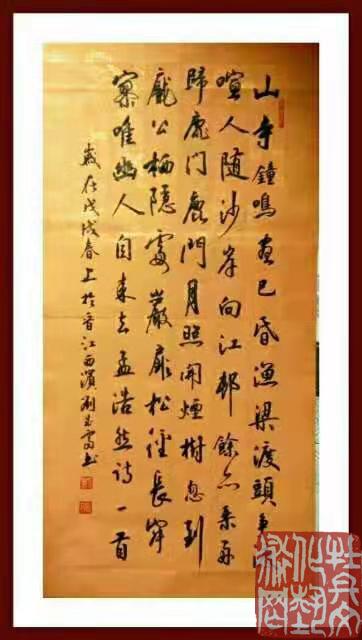 山寺鐘鳴晝已昏漁梁渡頭爭渡
喧人随沙岸向江邨餘亦乘舟
歸鹿門鹿門月照開煙樹忽到
龐公栖隱處巖扉松徑長寂
寥唯幽人自来去孟浩然诗一首
歲在戊戌春上於晋江西濱劉书